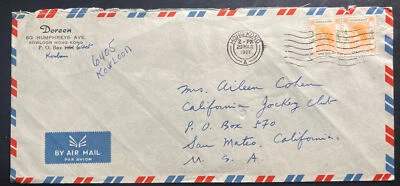 Doreen
63 HUMPHREYS AVE.
KOWLOON HONG KONG
P. O. Box
Kowloon
6405
KOWLOON
HONG KONG
2 - PM
Ms. Aileen Cohen
California Jockey Club
P. O. Box 570
San Mateo, California.
U. S. A
BY AIR MAIL
PAR AVION